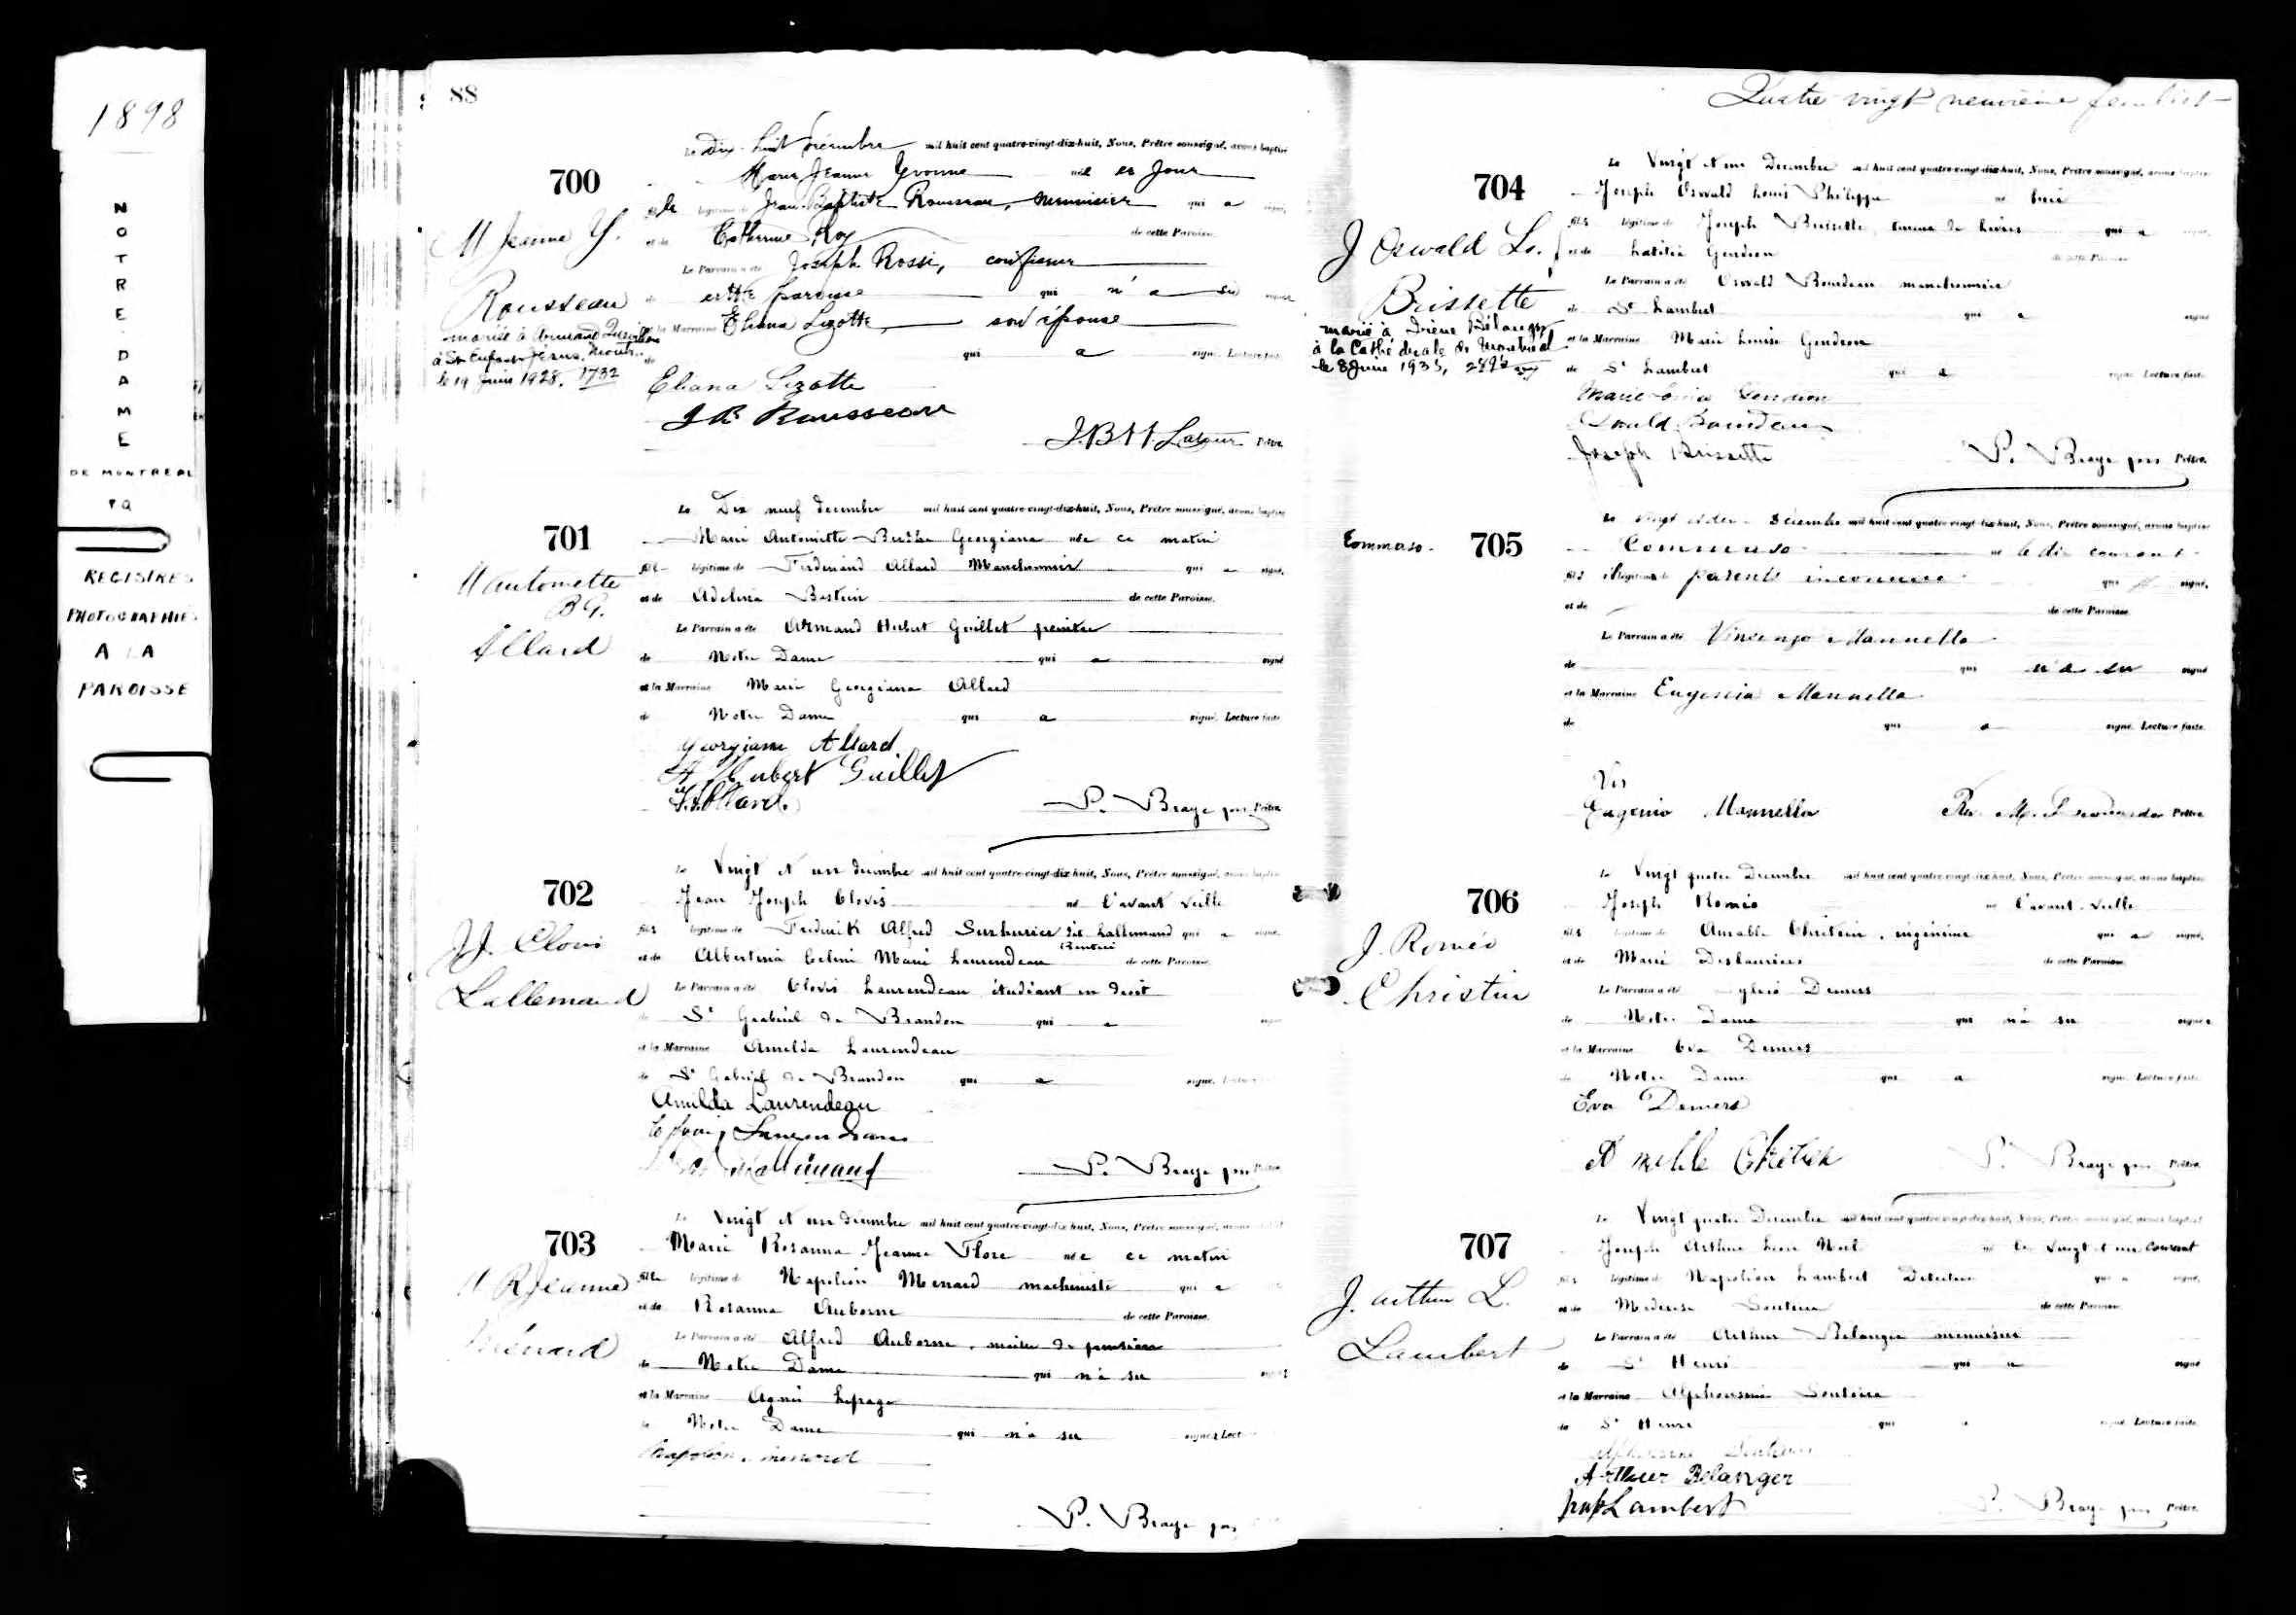 1898
NOTRE-DAME
DE MONTREAL
PQ
REGISTRES
PHOTOGRAPHIES
A LA
PAROISSE
88
700
M Jeanne Y.
Rousseau
mariée à Armand
à St Enfant Jésus, Montr.
le 19 Juin 1928. 1732
Le Dix-huit décembre mil huit cent quatre-vingt-dix-huit, Nous, Prêtre soussigné, avons baptisé
Marie Jeanne Yvonne née ce jour
fille légitime de Jean-Baptiste Rousseau, menuisier qui a signé,
et de Catherine Roy de cette Paroisse.
Le Parrain a été Joseph Rossi, confiseur
de cette paroisse qui n'a su signer
et la Marraine Eliana Lizotte, son épouse
de qui a signé. Lecture faite.
Eliana Lizotte
J B Rousseau
J.B.H. Latour Prêtre
701
M Antoinette
B G.
Allard
Le Dix neuf décembre mil huit cent quatre-vingt-dix-huit, Nous, Prêtre soussigné, avons baptisé
Marie Antoinette Berthe Georgiana née ce matin
fille légitime de Ferdinand Allard Manchonnier qui a signé,
et de Adelina Bastien de cette Paroisse.
Le Parrain a été Armand Hubert Guillet peintre
de Notre Dame qui a signé
et la Marraine Marie Georgiana Allard
de Notre Dame qui a signé. Lecture faite.
Georgiana Allard
A Hubert Guillet
F. Allard.
P. Braye pss Prêtre
702
J J. Clovis
Lallemand
Le Vingt et un décembre mil huit cent quatre-vingt-dix-huit, Nous, Prêtre soussigné, avons baptisé
Jean Joseph Clovis né l'avant veille
fils légitime de Frederick Alfred dit Lallemand qui a signé,
Rentier
et de Albertina Celina Marie Laurendeau de cette Paroisse.
Le Parrain a été Clovis Laurendeau étudiant en droit
de St Gabriel de Brandon qui a signé
et la Marraine Amelda Laurendeau
de St Gabriel de Brandon qui a signé. Lecture
Amilda Laurendeau
P. Braye pss Prêtre
703
M R Jeanne
Ménard
Le Vingt et un décembre mil huit cent quatre-vingt-dix-huit, Nous, Prêtre soussigné, avons baptisé
Marie Rosanna Jeanne Flore née ce matin
fille légitime de Napoléon Menard machiniste qui a
et de Rosanna Auborne de cette Paroisse.
Le Parrain a été Alfred Auborne, maître de pension
de Notre Dame qui n'a su signer
et la Marraine Agnès Lepage
de Notre Dame qui n'a su signer Lect
Napoléon menard
P. Braye pss
Quatre vingt neuvième feuillet
704
J Oswald Ls.
Brissette
marié à Irène Bélanger
à la Cathédrale de Montréal
le 8 Juin 1935,
Le Vingt et un Décembre mil huit cent quatre-vingt-dix-huit, Nous, Prêtre soussigné, avons baptisé
Joseph Oswald Louis Philippe né hier
fils légitime de Joseph Brissette teneur de livres qui a signé,
et de Gendron de cette Paroisse
Le Parrain a été Oswald Bourdeau manchonnier
de St Lambert qui a signé
et la Marraine Marie Louise Gendron
de St Lambert qui a signé. Lecture faite.
Marie Gendron
Oswald Bourdeau
Joseph Brissette
P. Braye pss Prêtre.
Tommaso.
705
Le vingt et deux Décembre mil huit cent quatre-vingt-dix-huit, Nous, Prêtre soussigné, avons baptisé
Tommaso né le dix courant
fils illégitime de parents inconnus qui signé,
et de de cette Paroisse.
Le Parrain a été Vincenzo Mannella
de qui n'a su signé
et la Marraine Eugenia Mannella
de qui a signé. Lecture faite.
Eugenio Mannella
Prêtre
706
J. Roméo
Christin
Le Vingt quatre Décembre mil huit cent quatre-vingt-dix-huit, Nous, Prêtre soussigné, avons baptisé
Joseph Roméo né l'avant-veille
fils légitime de Amable Christin, ingénieur qui a signé,
et de Marie Deslauriers de cette Paroisse
Le Parrain a été Demers
de Notre Dame qui n'a su signer
et la Marraine Eva Demers
de Notre Dame qui a signé. Lecture faite.
Eva Demers
P. Braye pss Prêtre
707
J. Arthur L.
Lambert
Le Vingt quatre Décembre mil huit cent quatre-vingt-dix-huit, Nous, Prêtre soussigné, avons baptisé
Joseph Arthur Léon Noel né le vingt et un courant
fils légitime de Napoléon Lambert Détective qui a signé,
et de de cette Paroisse
Le Parrain a été Arthur Belanger menuisier
de St Henri qui a signé
et la Marraine Alphonsine
de St Henri qui a signé. Lecture faite
Arthur Belanger
Lambert
P. Braye pss Prêtre